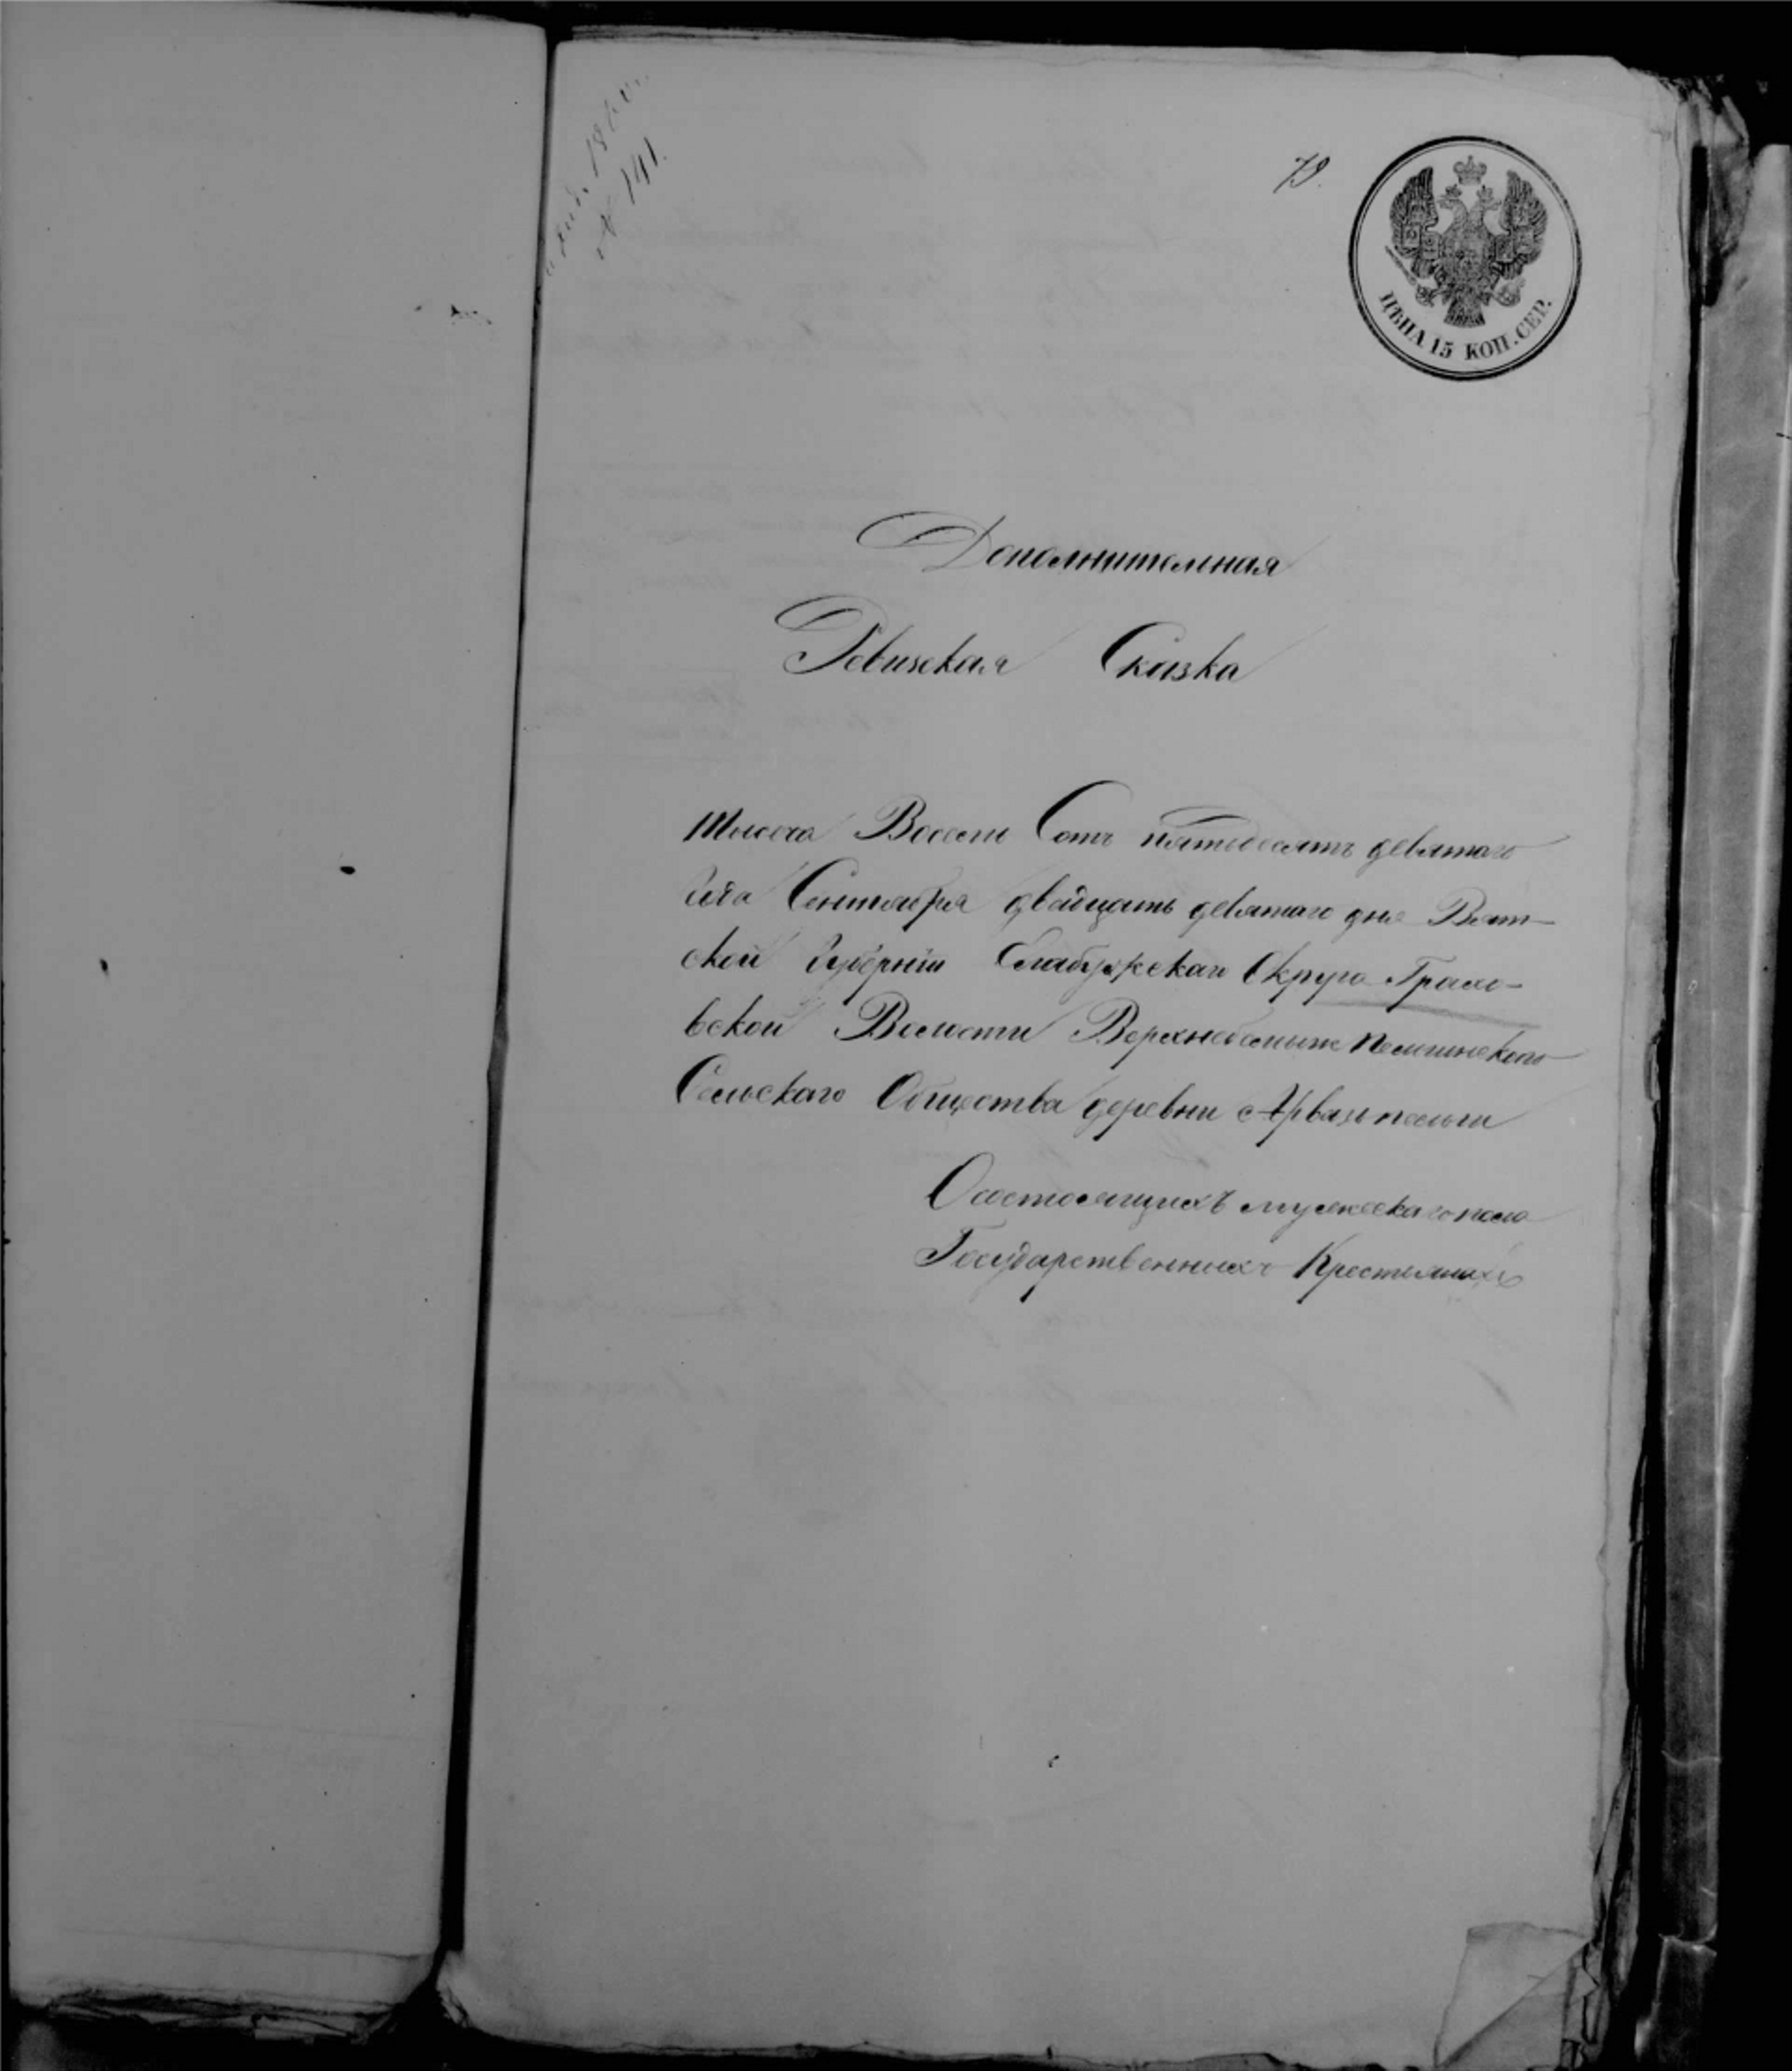 1860
№ 141.
79.
ЦѢНА 15 КОП. СЕР.
Дополнительная
Ревизская Сказка
Тысяча Восемь Сотъ пятьдесятъ девятаго
Года Сентября двадцать девятаго дня Вят-
ской Губерніи Елабужскаго Округа Грахо-
вской Волости
Сельскаго Общества деревни
О состоящихъ мужескаго пола
Государственныхъ Крестьянахъ